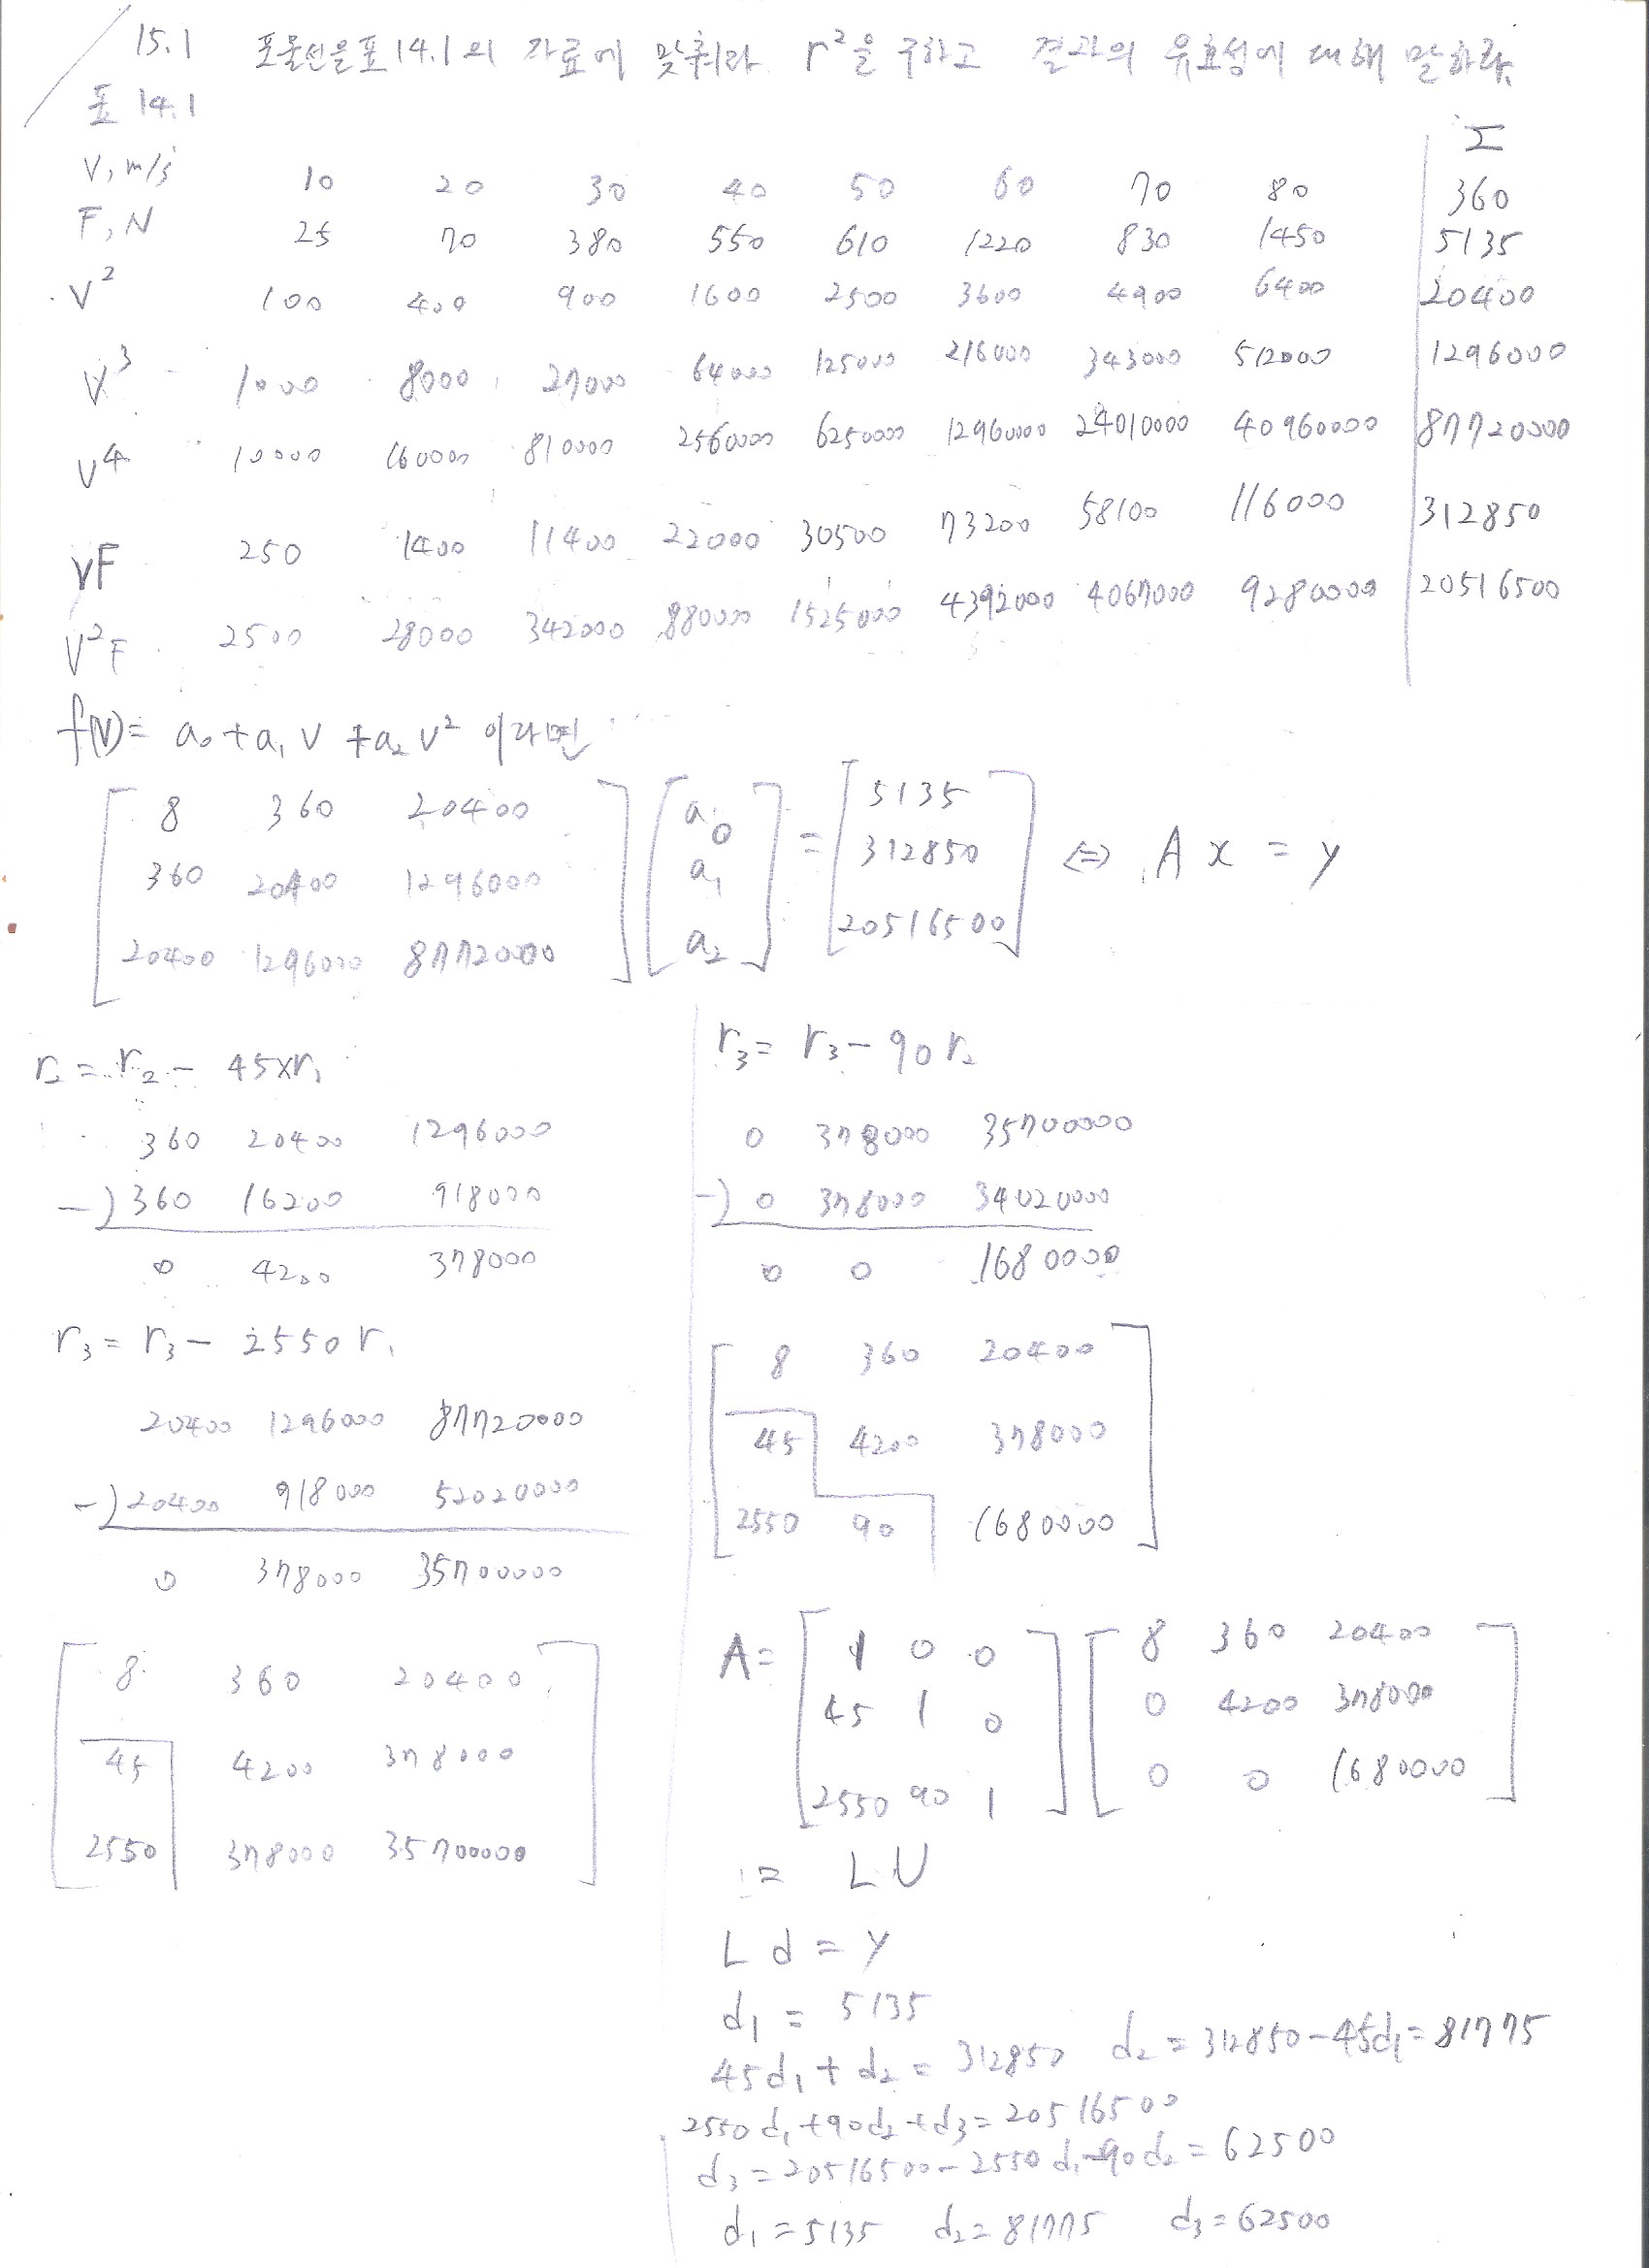 15.1 포물선을 표 14.1의 자료에 맞춰라 r²을 구하고 결과의 유효성에 대해 말하라.
표 14.1
Σ
V, m/s 10 20 30 40 50 60 70 80 360
F, N 25 70 380 550 610 1220 830 1450 5135
V² 100 400 900 1600 2500 3600 4900 6400 20400
V³ 1000 8000 27000 64000 125000 216000 343000 512000 1296000
V⁴ 10000 160000 810000 2560000 6250000 12960000 24010000 40960000 87720000
VF 250 1400 11400 22000 30500 73200 58100 116000 312850
V²F 2500 28000 342000 880000 1525000 4392000 4067000 9280000 20516500
f(V)= a₀+a₁V+a₂V² 이라면
[8 360 20400] [a₀] = [5135]
[360 20400 1296000] [a₁] [312850] ⇔ Ax = y
[20400 1296000 87720000] [a₂] [20516500]
r₂ = r₂ - 45×r₁
360 20400 1296000
-) 360 16200 918000
0 4200 378000
r₃ = r₃ - 2550r₁
20400 1296000 87720000
-) 20400 918000 52020000
0 378000 35700000
8 360 20400
45 4200 378000
2550 378000 35700000
r₃ = r₃ - 90r₂
0 378000 35700000
-) 0 378000 34020000
0 0 1680000
8 360 20400
45 4200 378000
2550 90 1680000
A = [1 0 0] [8 360 20400]
[45 1 0] [0 4200 378000]
[2550 90 1] [0 0 1680000]
= LU
Ld = y
d₁ = 5135
45d₁ + d₂ = 312850 d₂ = 312850-45d₁ = 81775
2550d₁+90d₂+d₃ = 20516500
d₃ = 20516500-2550d₁-90d₂ = 62500
d₁ = 5135 d₂ = 81775 d₃ = 62500